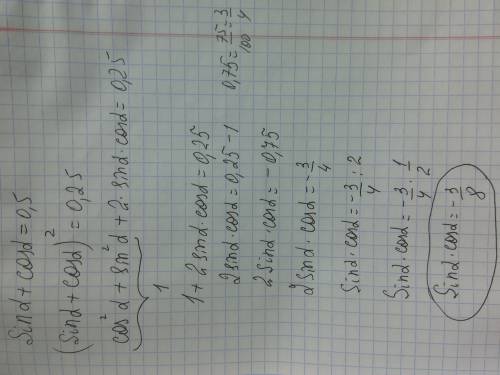 sin α + cos α = 0,5
(sin α + cos α)² = 0,25
cos² α + sin² α + 2 · sin α · cos α = 0,25
1
1 + 2 sin α · cos α = 0,25
2 sin α · cos α = 0,25 - 1
2 sin α · cos α = - 0,75
0,75 = 75/100 = 3/4
2 sin α · cos α = - 3/4
sin α · cos α = - 3/4 : 2
sin α · cos α = - 3/4 · 1/2
sin α · cos α = - 3/8